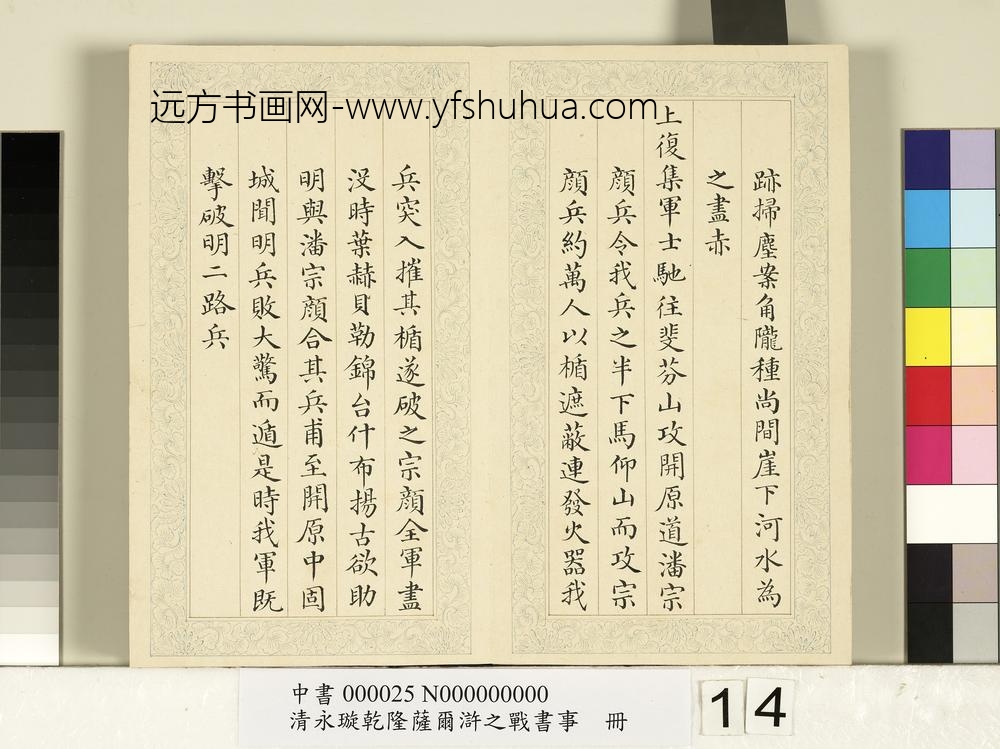 远方书画网-www.yfshuhua.com
跡掃塵案角隴種尚間崖下河水為
之盡赤
上復集軍士馳往斐芬山攻開原道潘宗
顏兵令我兵之半下馬仰山而攻宗
顏兵約萬人以楯遮蔽連發火器我
兵突入摧其楯遂破之宗顏全軍盡
沒時葉赫貝勒錦台什布揚古欲助
明與潘宗顏合其兵甫至開原中固
城聞明兵敗大驚而遁是時我軍既
擊破明二路兵
中書 000025 N000000000
清永璇乾隆薩爾滸之戰書事 冊
14